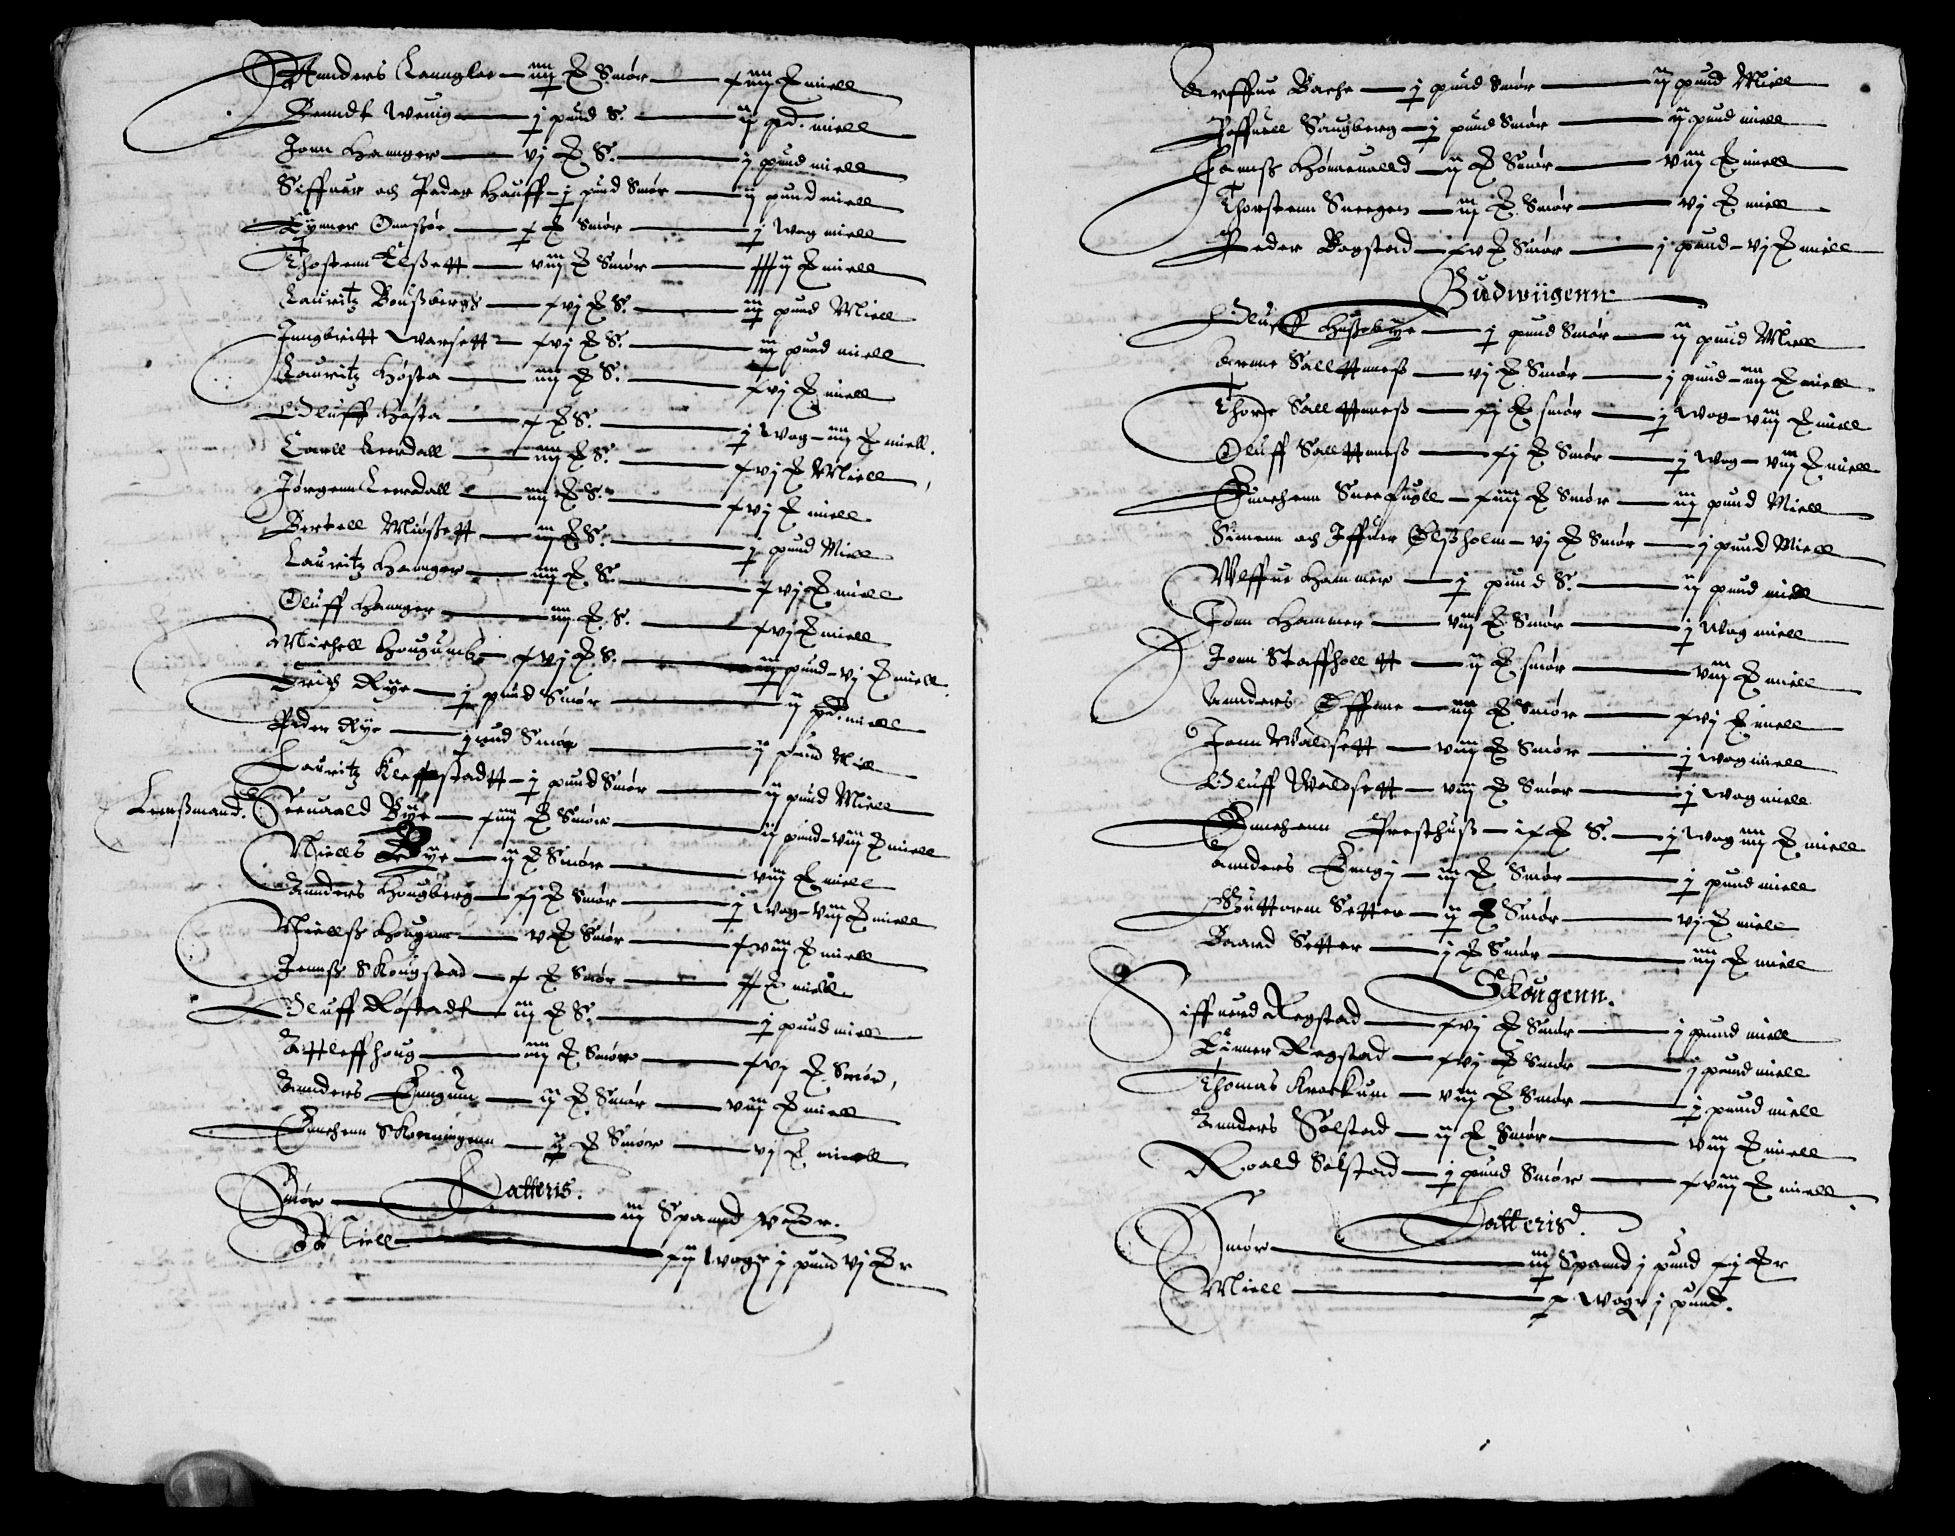 Anders Leangloe — iiij ℔ Smør — xiiij ℔ miell
Benndt Weuig — j pund S. — ij pd. miell
Jonn Hannger — vj ℔ S. — j pund miell
Siffuer och Peder Hauff — j pund Smør — ij pund miell
Einner — x ℔ Smør — j Wog miell
Thostenn Elssett — viij ℔ Smør — ℔ miell
Lauritz Boussberg — xvj ℔ S. — iij pund Miell
Inngbritt Warsett — xvj ℔ S. — iij pund miell
Lauritz Høsta — iiij ℔ S. — xvj ℔ miell
Oluff Høsta — x ℔ S. — j Wog — iiij ℔ miell.
Carll Leerdall — iiij ℔ S. — xvj ℔ Miell
Jørgenn Leerdall — iiij ℔ S. — xvj ℔ miell
Bertell Miøssett — iij ℔ S. — j pund Miell
Lauritz Hannger — iiij ℔ S. — xvj ℔ miell
Oluff Hannger — iiij ℔ S. — xvj ℔ miell
Michell Hougumb — xvj ℔ S. — iij pund — vj ℔ miell
Erich Rye — j pund Smør — ij pd. miell
Peder Rye — j pund Smør — ij pund Miell
Lauritz Kleffstadtt — j pund Smør — ij pund Miell
Lenssmand. Seeuaald Bye — xiiij ℔ Smør — ij pund — viij ℔ miell
Niells Bye — ij ℔ Smør — viij ℔ miell
Anders Hougberg — xj ℔ Smør — j Wog — viij ℔ miell
Niellss Hougum — v ℔ Smør — xviij ℔ miell
Jennss Skougstad — x ℔ Smør — xx ℔ miell
Oluff Røstadt — iij ℔ S. — j pund miell
Attleffhoug — iiij ℔ Smør — xvj ℔ Smør,
Anders Eungum — ij ℔ Smør — viij ℔ miell
Einchenn Skonningenn — ij ℔ Smør — vj ℔ miell
Latteris.
Smør — iij Spannd xv ℔r.
Miell — xij Wogr j pund vj ℔r
Arffue Bache — j pund Smør — ij pund Miell
Poffuell Saugberg — j pund Smør — ij pund miell
Jennss Hønneualld — ij ℔ Smør — viij ℔ miell
Thorstenn Sneegen — iij ℔ Smør — vj ℔ miell
Peder Bogstad — xv ℔ Smør — j pund — vj ℔ miell
Budwiigenn
Oluff Hussebye — j pund Smør — ij pund Miell
Arnne Sallttness — vj ℔ Smør — j pund — iiij ℔ miell
Thore Sallttness — xj ℔ smør — j Wog — viij ℔ miell
Oluff Sallttness — xj ℔ Smør — j Wog — viij ℔ miell
Einchenn Sneefugll — xiiij ℔ Smør — iij pund Miell
Simenn och Iffuer Ølssholm — vj ℔ Smør — j pund Miell
Wlffue Hammer — j pund S. — ij pund miell
Jonn Hammer — viij ℔ Smør — j Wog miell
Jonn Staffhollt — ij ℔ smør — viij ℔ miell
Annders Øffnne — iiij ℔ Smør — xvj ℔ miell
Jonn Waldsett — viij ℔ Smør — j wog miell
Oluff Waldsett — viij ℔ Smør — j Wog miell
Einchenn Presthuss — ix ℔ S. — j Wog iiij ℔ miell
Annders Eungj — iij ℔ Smør — j pund miell
Guttorm Setter — ij ℔ Smør — vj ℔ miell
Baard Setter — j ℔ Smør — iiij ℔ miell
Skougenn.
Siffuerd Regstad — xvj ℔ Smør — j pund miell
Einner Regstad — xvj ℔ Smør — j pund miell
Thomas Krockum — viij ℔ Smør — j pund miell
Annders Solstad — ij ℔ Smør — viij ℔ miell
Roald Solstad — j pund Smør — xviij ℔ miell.
Latteris
Smør — iij Spannd j pund xj ℔r
Miell — x Wogr j pund.